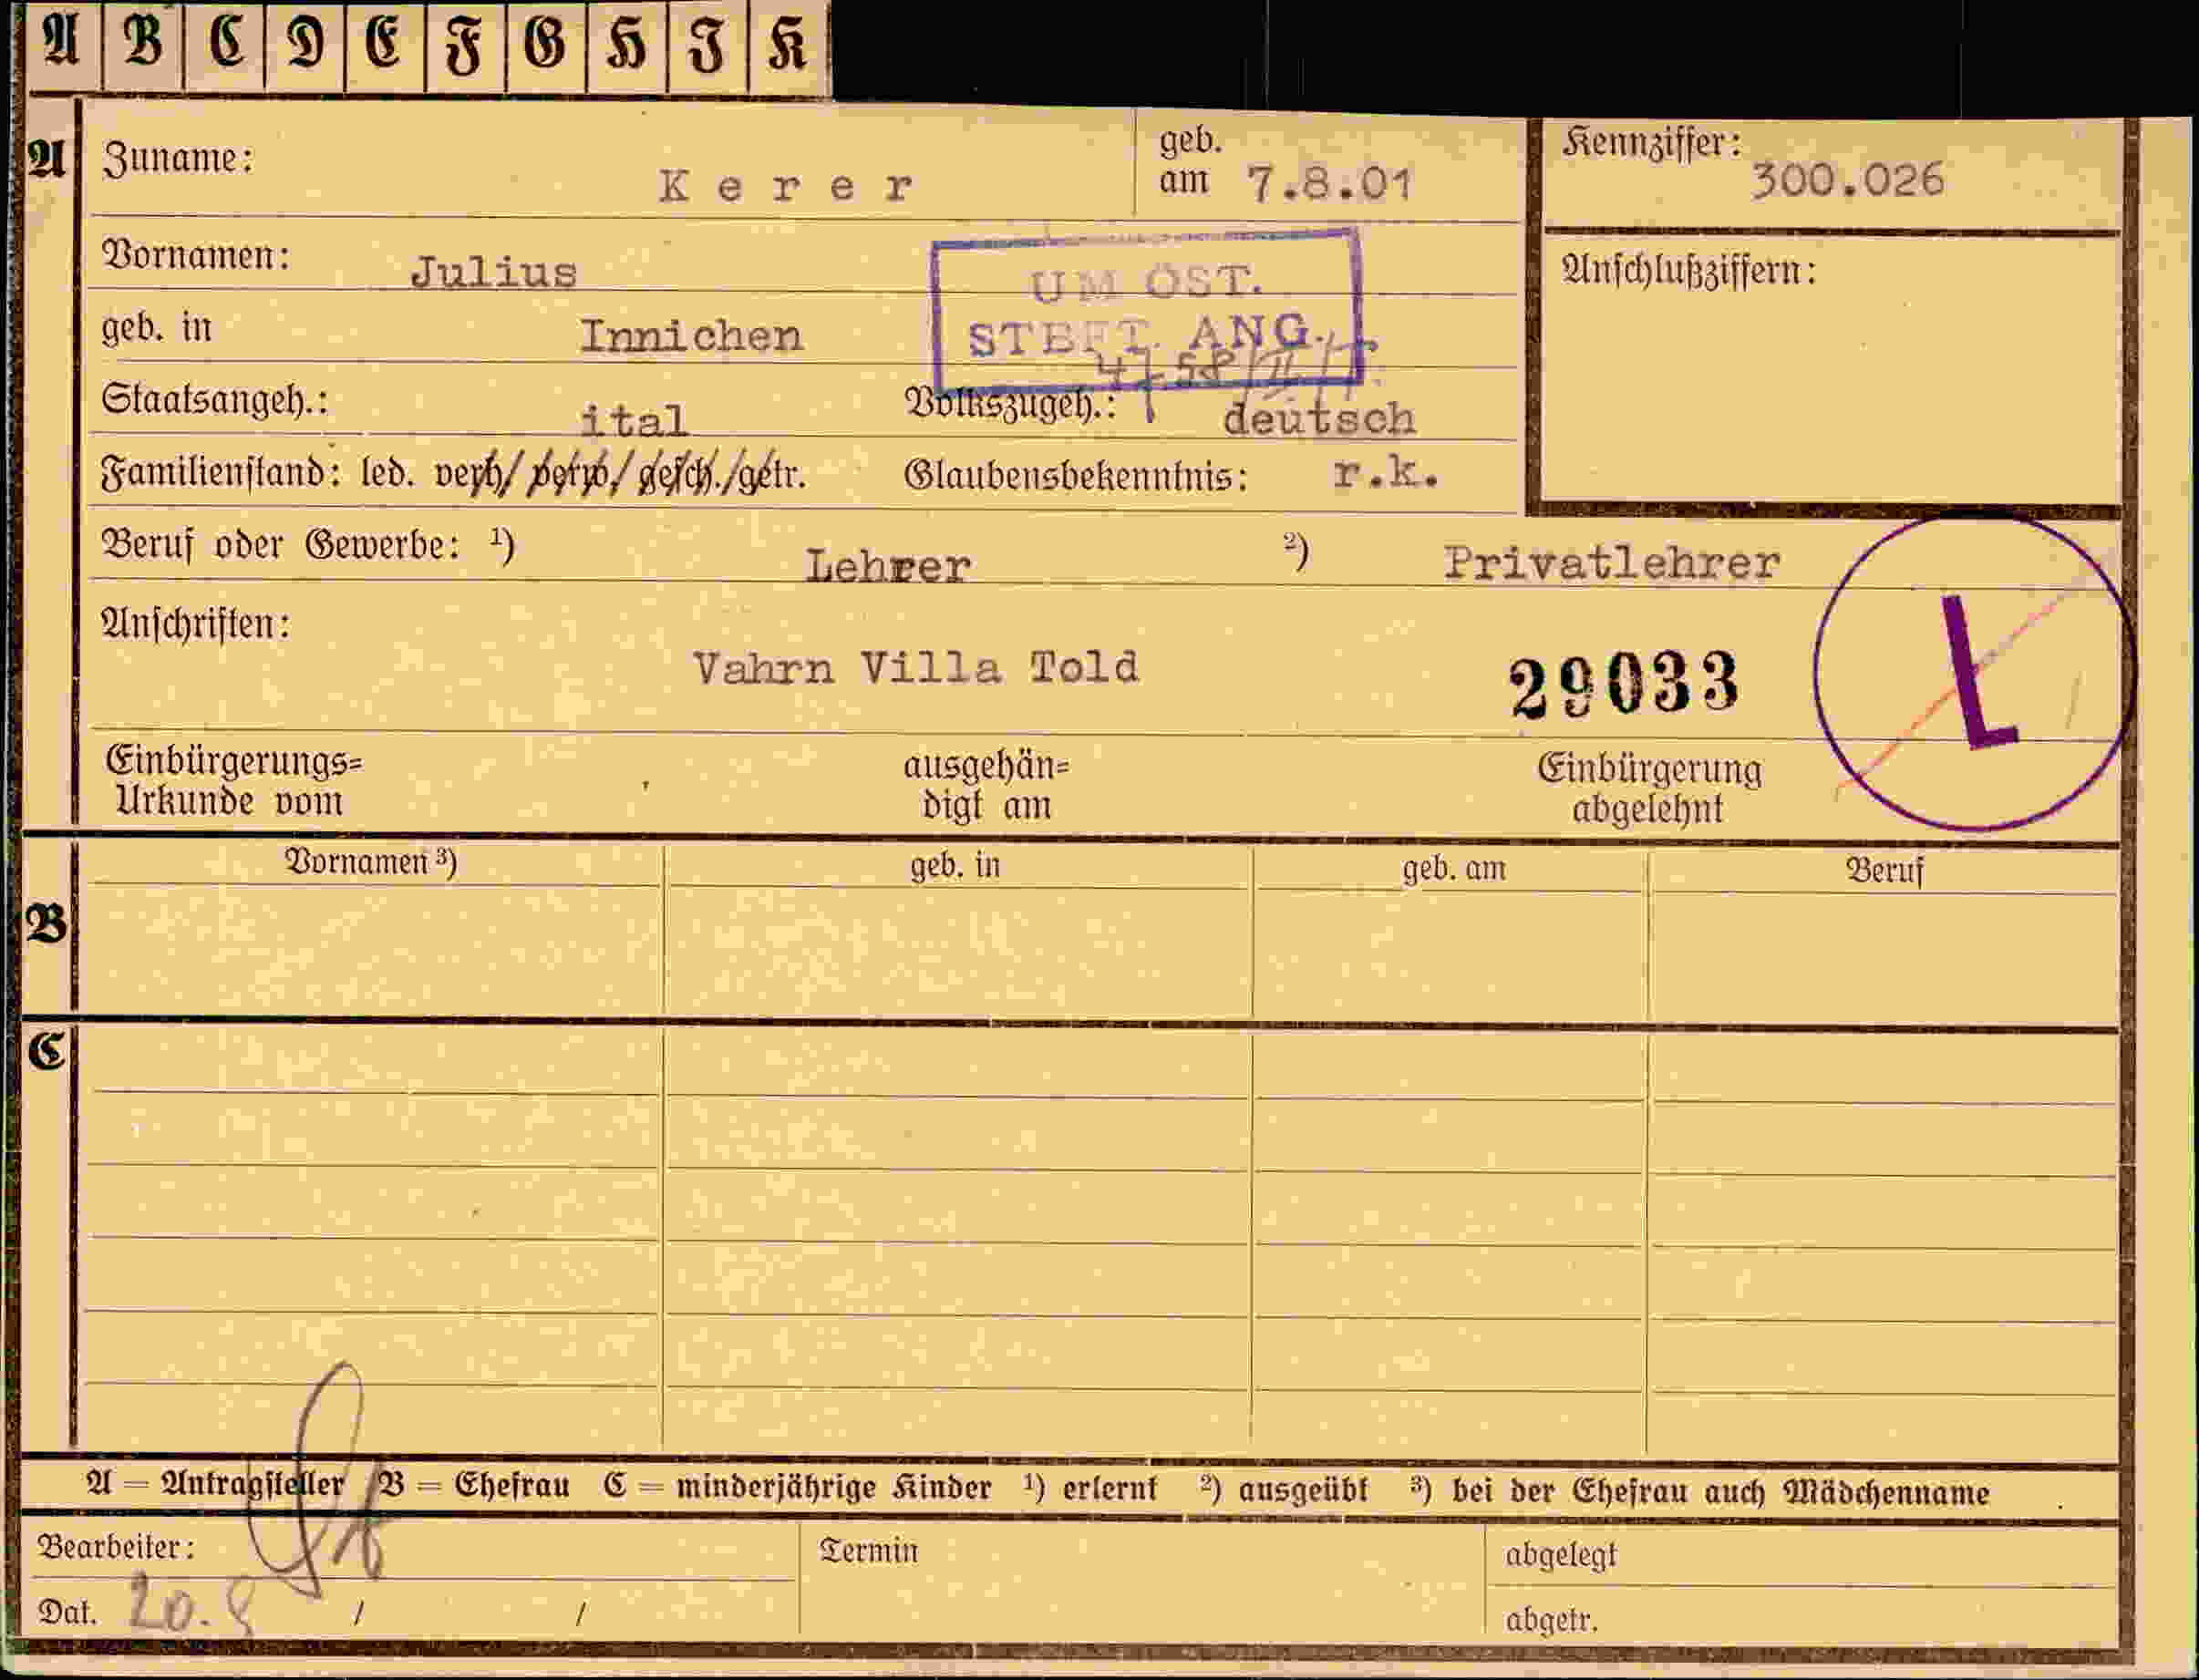 A B C D E F G H J K
A Zuname: Kerer geb. am 7.8.01 Kennziffer: 300.026
Vornamen: Julius Anschlußziffern:
UM ÖST.
STBFT. ANG.
geb. in Innichen
Staatsangeh.: ital Volkszugeh.: deutsch
Familienstand: led. verh/ verw/ gesch./getr. Glaubensbekenntnis: r.k.
Beruf oder Gewerbe: ¹) Lehrer ²) Privatlehrer
Anschriften:
Vahrn Villa Told 29033 L
Einbürgerungs= ausgehän= Einbürgerung
Urkunde vom digt am abgelehnt
Vornamen ³) geb. in geb. am Beruf
B
C
A = Antragsteller B = Ehefrau C = minderjährige Kinder ¹) erlernt ²) ausgeübt ³) bei der Ehefrau auch Mädchenname
Bearbeiter: Termin abgelegt
Dat. 20. 8 / / abgetr.